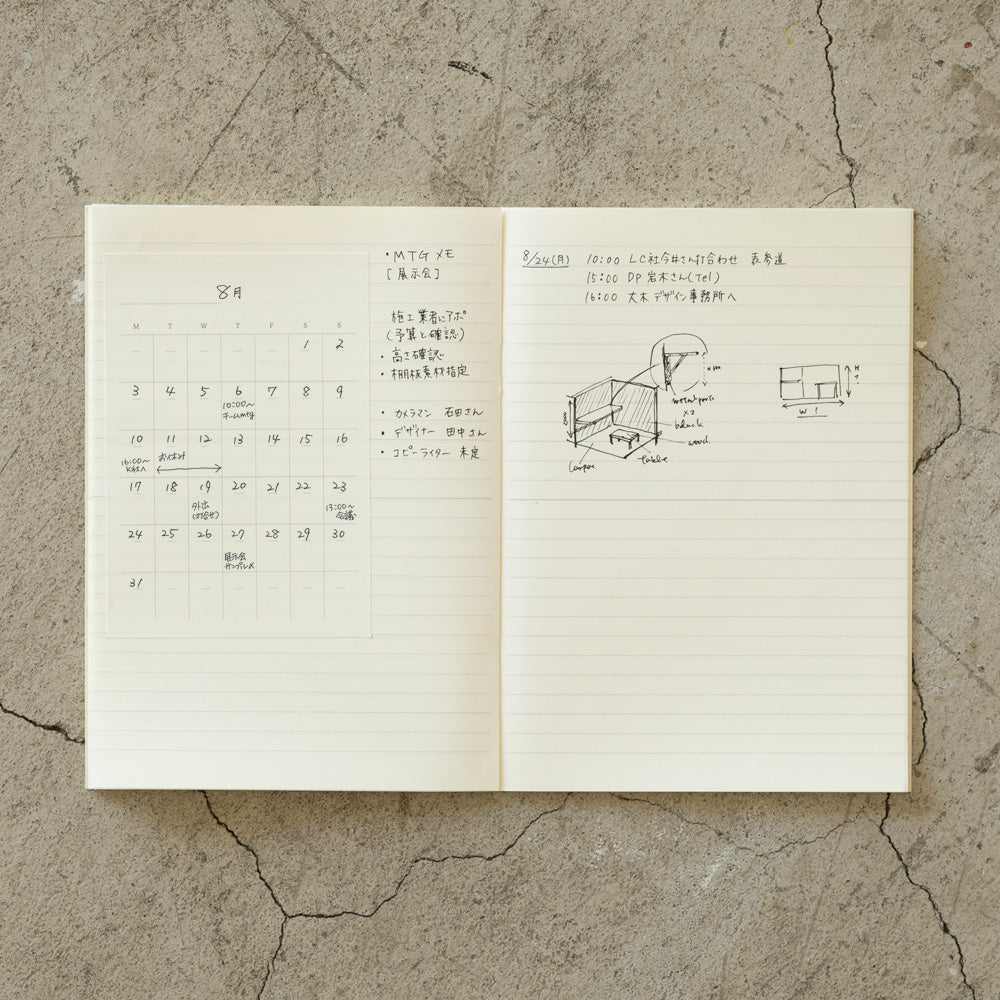 8月
M T W T F S S
1 2
3 4 5 6 7 8 9
10:00〜
チームmtg
10 11 12 13 14 15 16
16:00〜
K社へ
お休み
17 18 19 20 21 22 23
外出
(打合せ)
13:00〜
会議
24 25 26 27 28 29 30
展示会
サンプル〆
31
・MTG メモ
[展示会]
施工業者にアポ
(予算と確認)
・高さ確認
・棚板素材指定
・カメラマン 石田さん
・デザイナー 田中さん
・コピーライター 未定
8/24(月) 10:00 LC社今井さん打合わせ 表参道
15:00 DP 岩木さん(Tel)
16:00 大木デザイン事務所へ
×2
black
wood
table
H
W ?